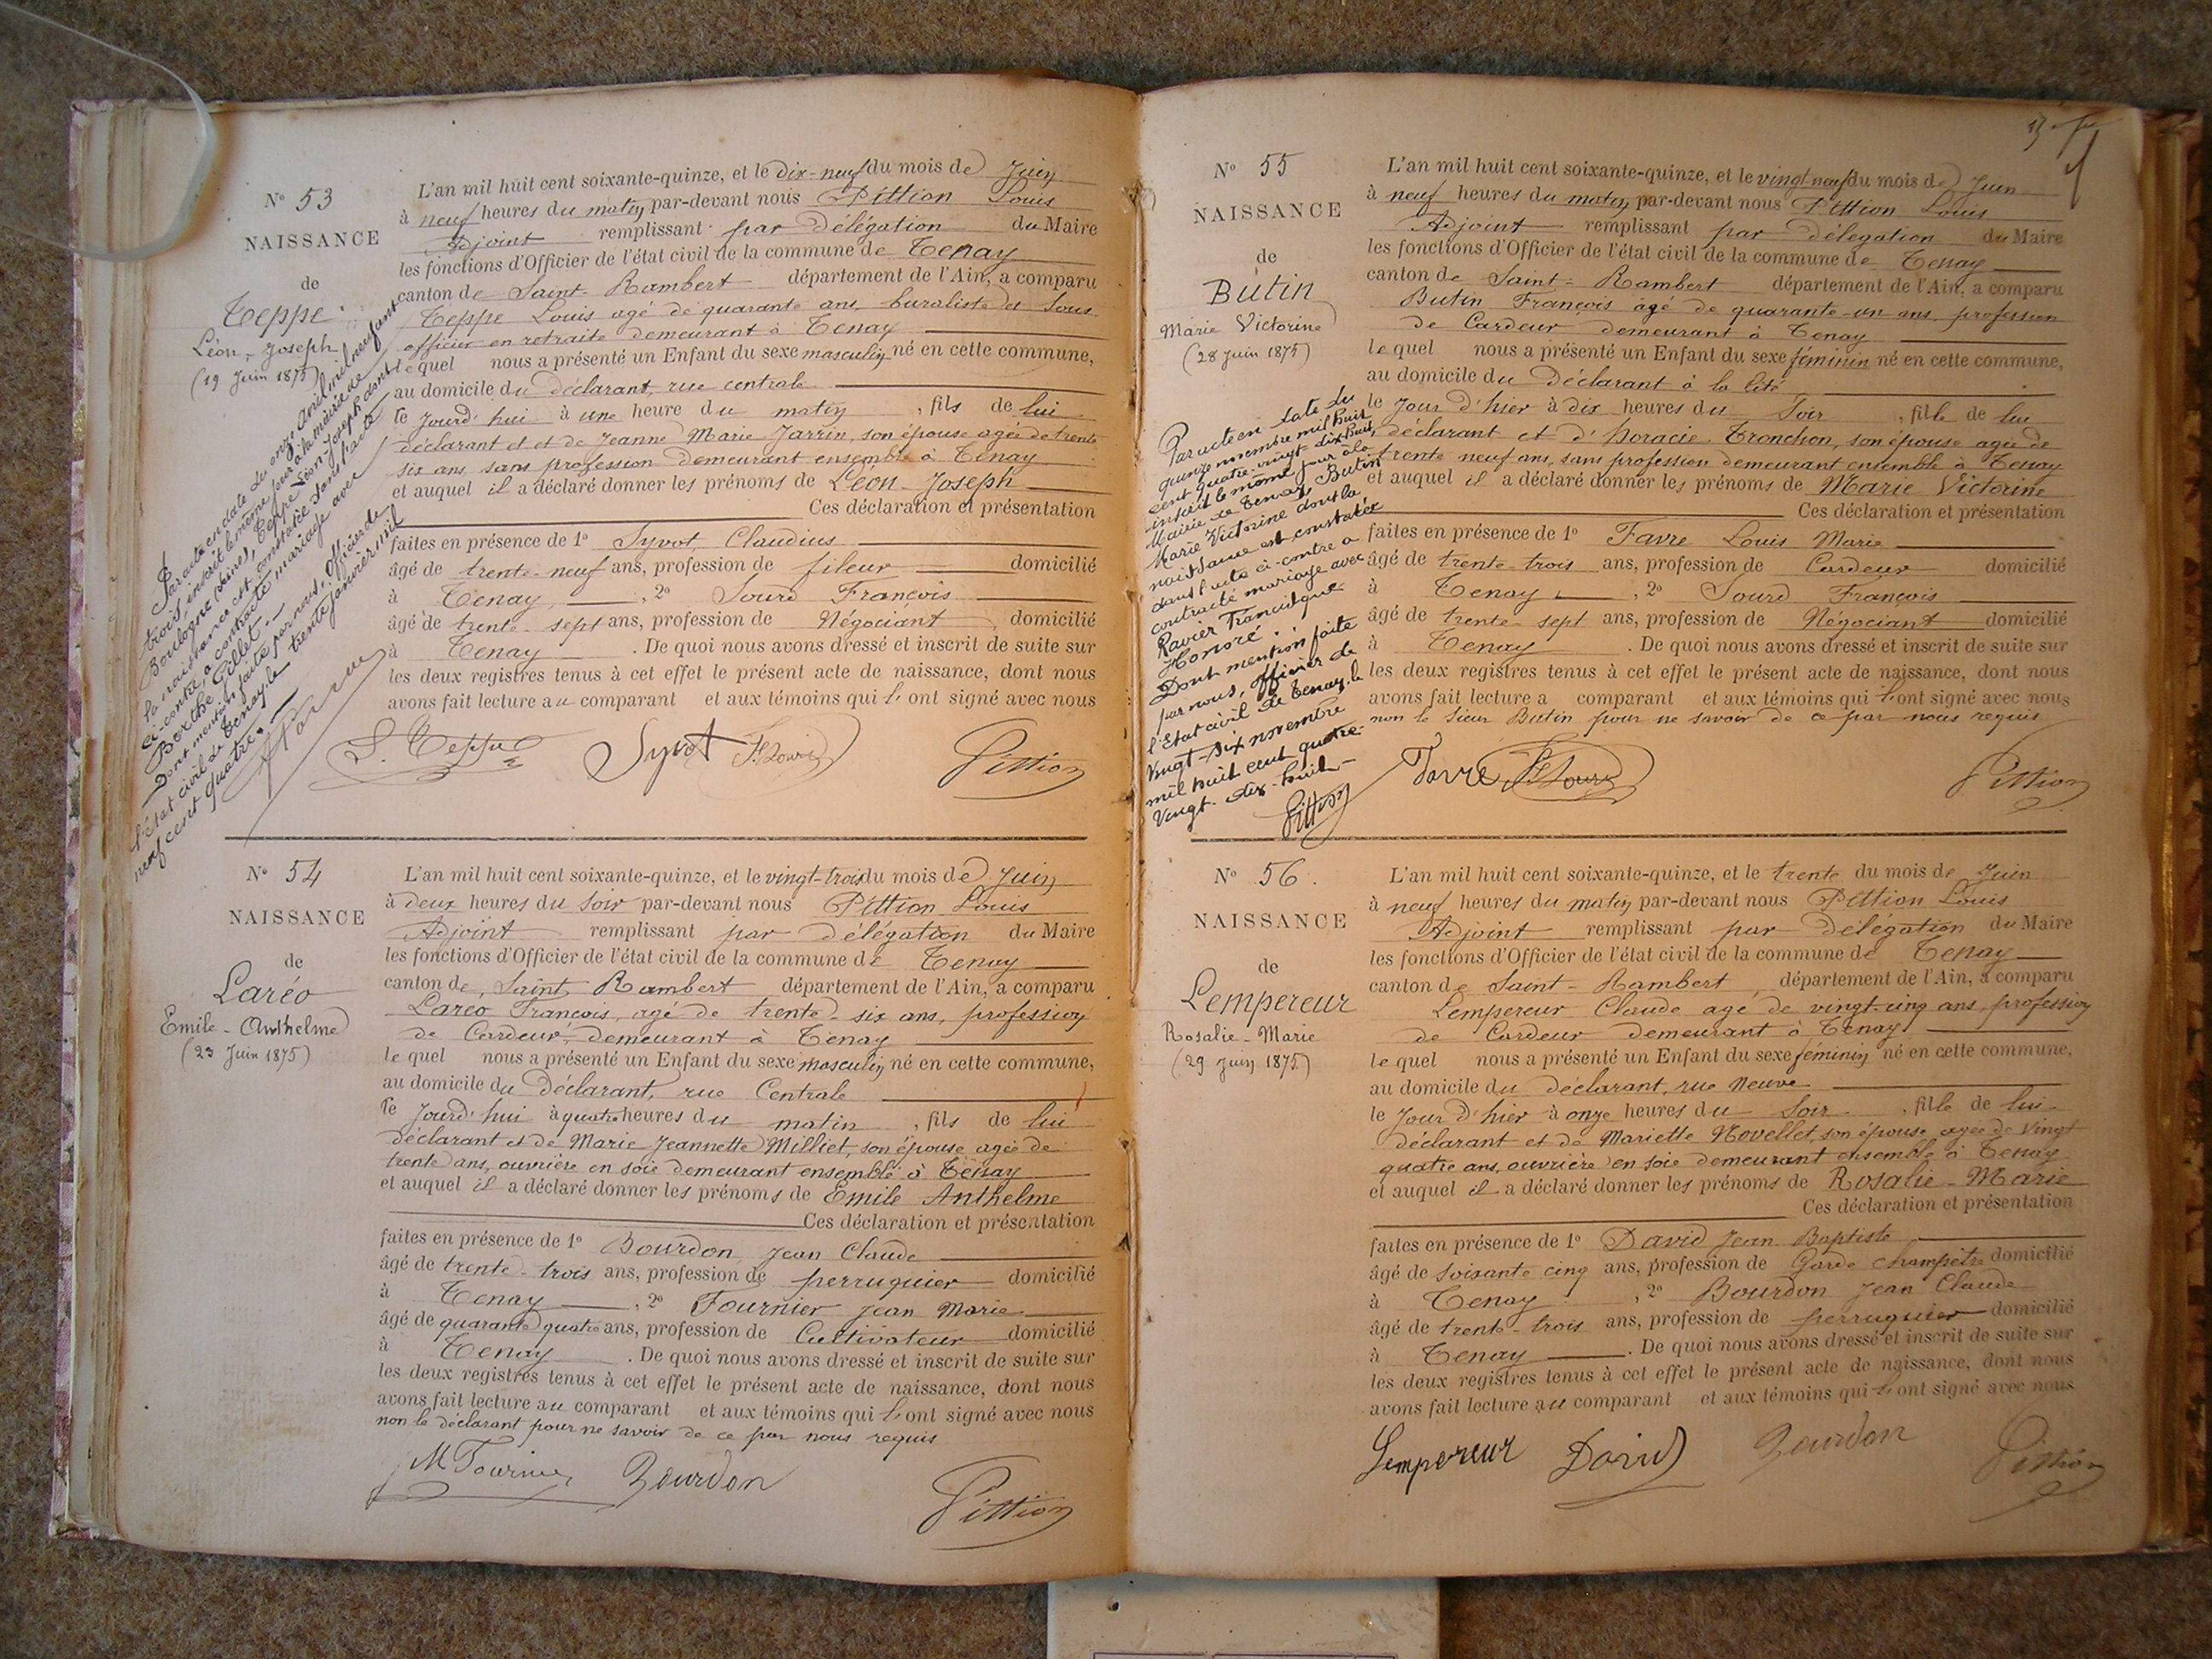 N° 53
NAISSANCE
de
Teppe
Léon-Joseph
(19 Juin 1875)
Par acte en date du onze avril mil neuf cent
trois, inscrit le même jour à la mairie de
Boulogne (Seine), Teppe Léon-Joseph dont
la naissance est constatée dans l'acte
ci-contre, a contracté mariage avec
Berthe Gillet.—
Dont mention faite par nous, officier de
l'état civil de Tenay, le trente janvier mil
neuf cent quatre.—
L'an mil huit cent soixante-quinze, et le dix-neuf du mois de Juin
à neuf heures du matin par-devant nous Pittion Louis
Adjoint remplissant par délégation du Maire
les fonctions d'Officier de l'état civil de la commune de Tenay
canton de Saint-Rambert département de l'Ain, a comparu
Teppe Louis agé de quarante ans, buraliste et Sous-
officier en retraite demeurant à Tenay
lequel nous a présenté un Enfant du sexe masculin né en cette commune,
au domicile du déclarant, rue centrale
le Jourd'hui à une heure du matin, fils de lui
déclarant et et de Jeanne Marie Jarrin, son épouse agée de trente
six ans, sans profession demeurant ensemble à Tenay
et auquel il a déclaré donner les prénoms de Léon-Joseph
Ces déclaration et présentation
faites en présence de 1° Syvot Claudius
âgé de trente-neuf ans, profession de fileur domicilié
à Tenay, 2° Sourd François
âgé de trente-sept ans, profession de Négociant, domicilié
à Tenay. De quoi nous avons dressé et inscrit de suite sur
les deux registres tenus à cet effet le présent acte de naissance, dont nous
avons fait lecture au comparant et aux témoins qui l'ont signé avec nous
L. Teppe Syvot F. Sourd Pittion
N° 54
NAISSANCE
de
Laréo
Emile-Anthelme
(23 Juin 1875)
L'an mil huit cent soixante-quinze, et le vingt-trois du mois de Juin
à deux heures du soir par-devant nous Pittion Louis
Adjoint remplissant par délégation du Maire
les fonctions d'Officier de l'état civil de la commune de Tenay
canton de Saint Rambert département de l'Ain, a comparu
Laréo François, agé de trente-six ans, profession
de Cardeur, demeurant à Tenay
lequel nous a présenté un Enfant du sexe masculin né en cette commune,
au domicile du Déclarant, rue Centrale
le Jourd'hui à quatre heures du matin, fils de lui
déclarant et de Marie Jeannette Milliet, son épouse agée de
trente ans, ouvrière en soie demeurant ensemble à Tenay
et auquel il a déclaré donner les prénoms de Emile Anthelme
Ces déclaration et présentation
faites en présence de 1° Bourdon Jean Claude
âgé de trente-trois ans, profession de perruquier domicilié
à Tenay, 2° Fournier Jean Marie
âgé de quarante quatre ans, profession de Cultivateur domicilié
à Tenay. De quoi nous avons dressé et inscrit de suite sur
les deux registres tenus à cet effet le présent acte de naissance, dont nous
avons fait lecture au comparant et aux témoins qui l'ont signé avec nous
non le déclarant pour ne savoir de ce par nous requis
M Fournier Bourdon Pittion
N° 55
NAISSANCE
de
Butin
Marie Victorine
(28 Juin 1875)
Par acte en date du
quinze novembre mil huit
cent quatre-vingt-dix-huit,
inscrit le même jour à la
Mairie de Tenay, Butin
Marie Victorine dont la
naissance est constatée
dans l'acte ci-contre a
contracté mariage avec
Ravier Francisque
Honoré.
Dont mention faite
par nous, officier de
l'Etat civil de Tenay, le
vingt-six novembre
mil huit cent quatre-
vingt-dix-huit—
Pittion
L'an mil huit cent soixante-quinze, et le vingt-neuf du mois de Juin
à neuf heures du matin par-devant nous Pittion Louis
Adjoint remplissant par délégation du Maire
les fonctions d'Officier de l'état civil de la commune de Tenay
canton de Saint-Rambert département de l'Ain, a comparu
Butin François agé de quarante-un ans, profession
de Cardeur demeurant à Tenay
lequel nous a présenté un Enfant du sexe féminin né en cette commune,
au domicile du Déclarant à la Cité
le Jour d'hier à dix heures du Soir, fille de lui
déclarant et d'horacie Tronchon, son épouse agée de
trente neuf ans, sans profession demeurant ensemble à Tenay
et auquel il a déclaré donner les prénoms de Marie Victorine
Ces déclaration et présentation
faites en présence de 1° Favre Louis Marie
âgé de trente-trois ans, profession de Cardeur domicilié
à Tenay, 2° Sourd François
âgé de trente-sept ans, profession de Négociant domicilié
à Tenay. De quoi nous avons dressé et inscrit de suite sur
les deux registres tenus à cet effet le présent acte de naissance, dont nous
avons fait lecture a comparant et aux témoins qui l'ont signé avec nous
non le sieur Butin pour ne savoir de ce par nous requis
Favre F. Sourd Pittion
N° 56
NAISSANCE
de
Lempereur
Rosalie-Marie
(29 Juin 1875)
L'an mil huit cent soixante-quinze, et le trente du mois de Juin
à neuf heures du matin par-devant nous Pittion Louis
Adjoint remplissant par délégation du Maire
les fonctions d'Officier de l'état civil de la commune de Tenay
canton de Saint-Rambert, département de l'Ain, a comparu
Lempereur Claude agé de vingt-cinq ans, profession
de Cardeur demeurant à Tenay
lequel nous a présenté un Enfant du sexe féminin né en cette commune,
au domicile du déclarant, rue Neuve
le Jour d'hier à onze heures du Soir, fille de lui
déclarant et de Mariette Novellet, son épouse agée de vingt
quatre ans, ouvrière en soie demeurant ensemble à Tenay
et auquel il a déclaré donner les prénoms de Rosalie-Marie
Ces déclaration et présentation
faites en présence de 1° David Jean Baptiste
âgé de soixante cinq ans, profession de Garde champêtre domicilié
à Tenay, 2° Bourdon Jean Claude
âgé de trente-trois ans, profession de perruquier domicilié
à Tenay. De quoi nous avons dressé et inscrit de suite sur
les deux registres tenus à cet effet le présent acte de naissance, dont nous
avons fait lecture au comparant et aux témoins qui l'ont signé avec nous
Lempereur David Bourdon Pittion